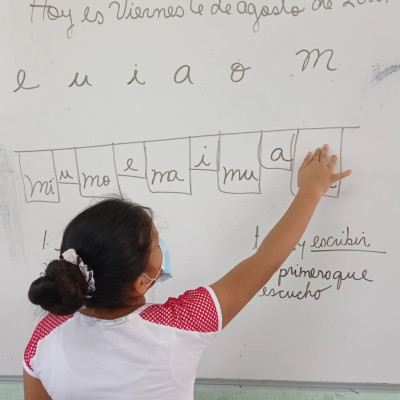 Hoy es Viernes 6 de agosto de
e u i a o m
mi u mo e ma i mu a
1.
y escribir
primero que
escucho